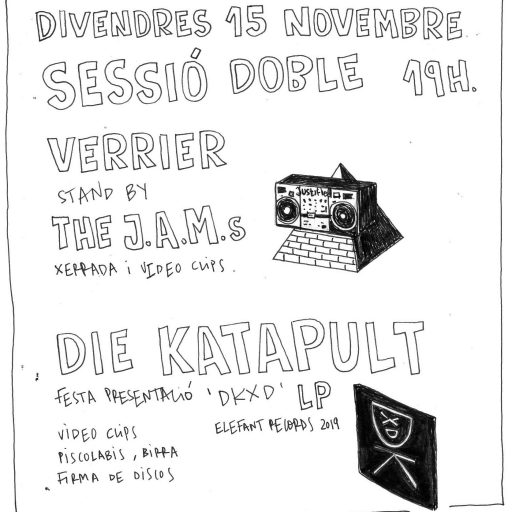 DIVENDRES 15 NOVEMBRE
SESSIÓ DOBLE 19H.
VERRIER
STAND BY
THE J.A.M.s
XERRADA i VIDEO CLIPS.
Justified
DIE KATAPULT
FESTA PRESENTACIÓ 'DKXD' LP
ELEFANT RECORDS 2019
VIDEO CLIPS
PISCOLABIS, BIRRA
FIRMA DE DISCOS
XD
K